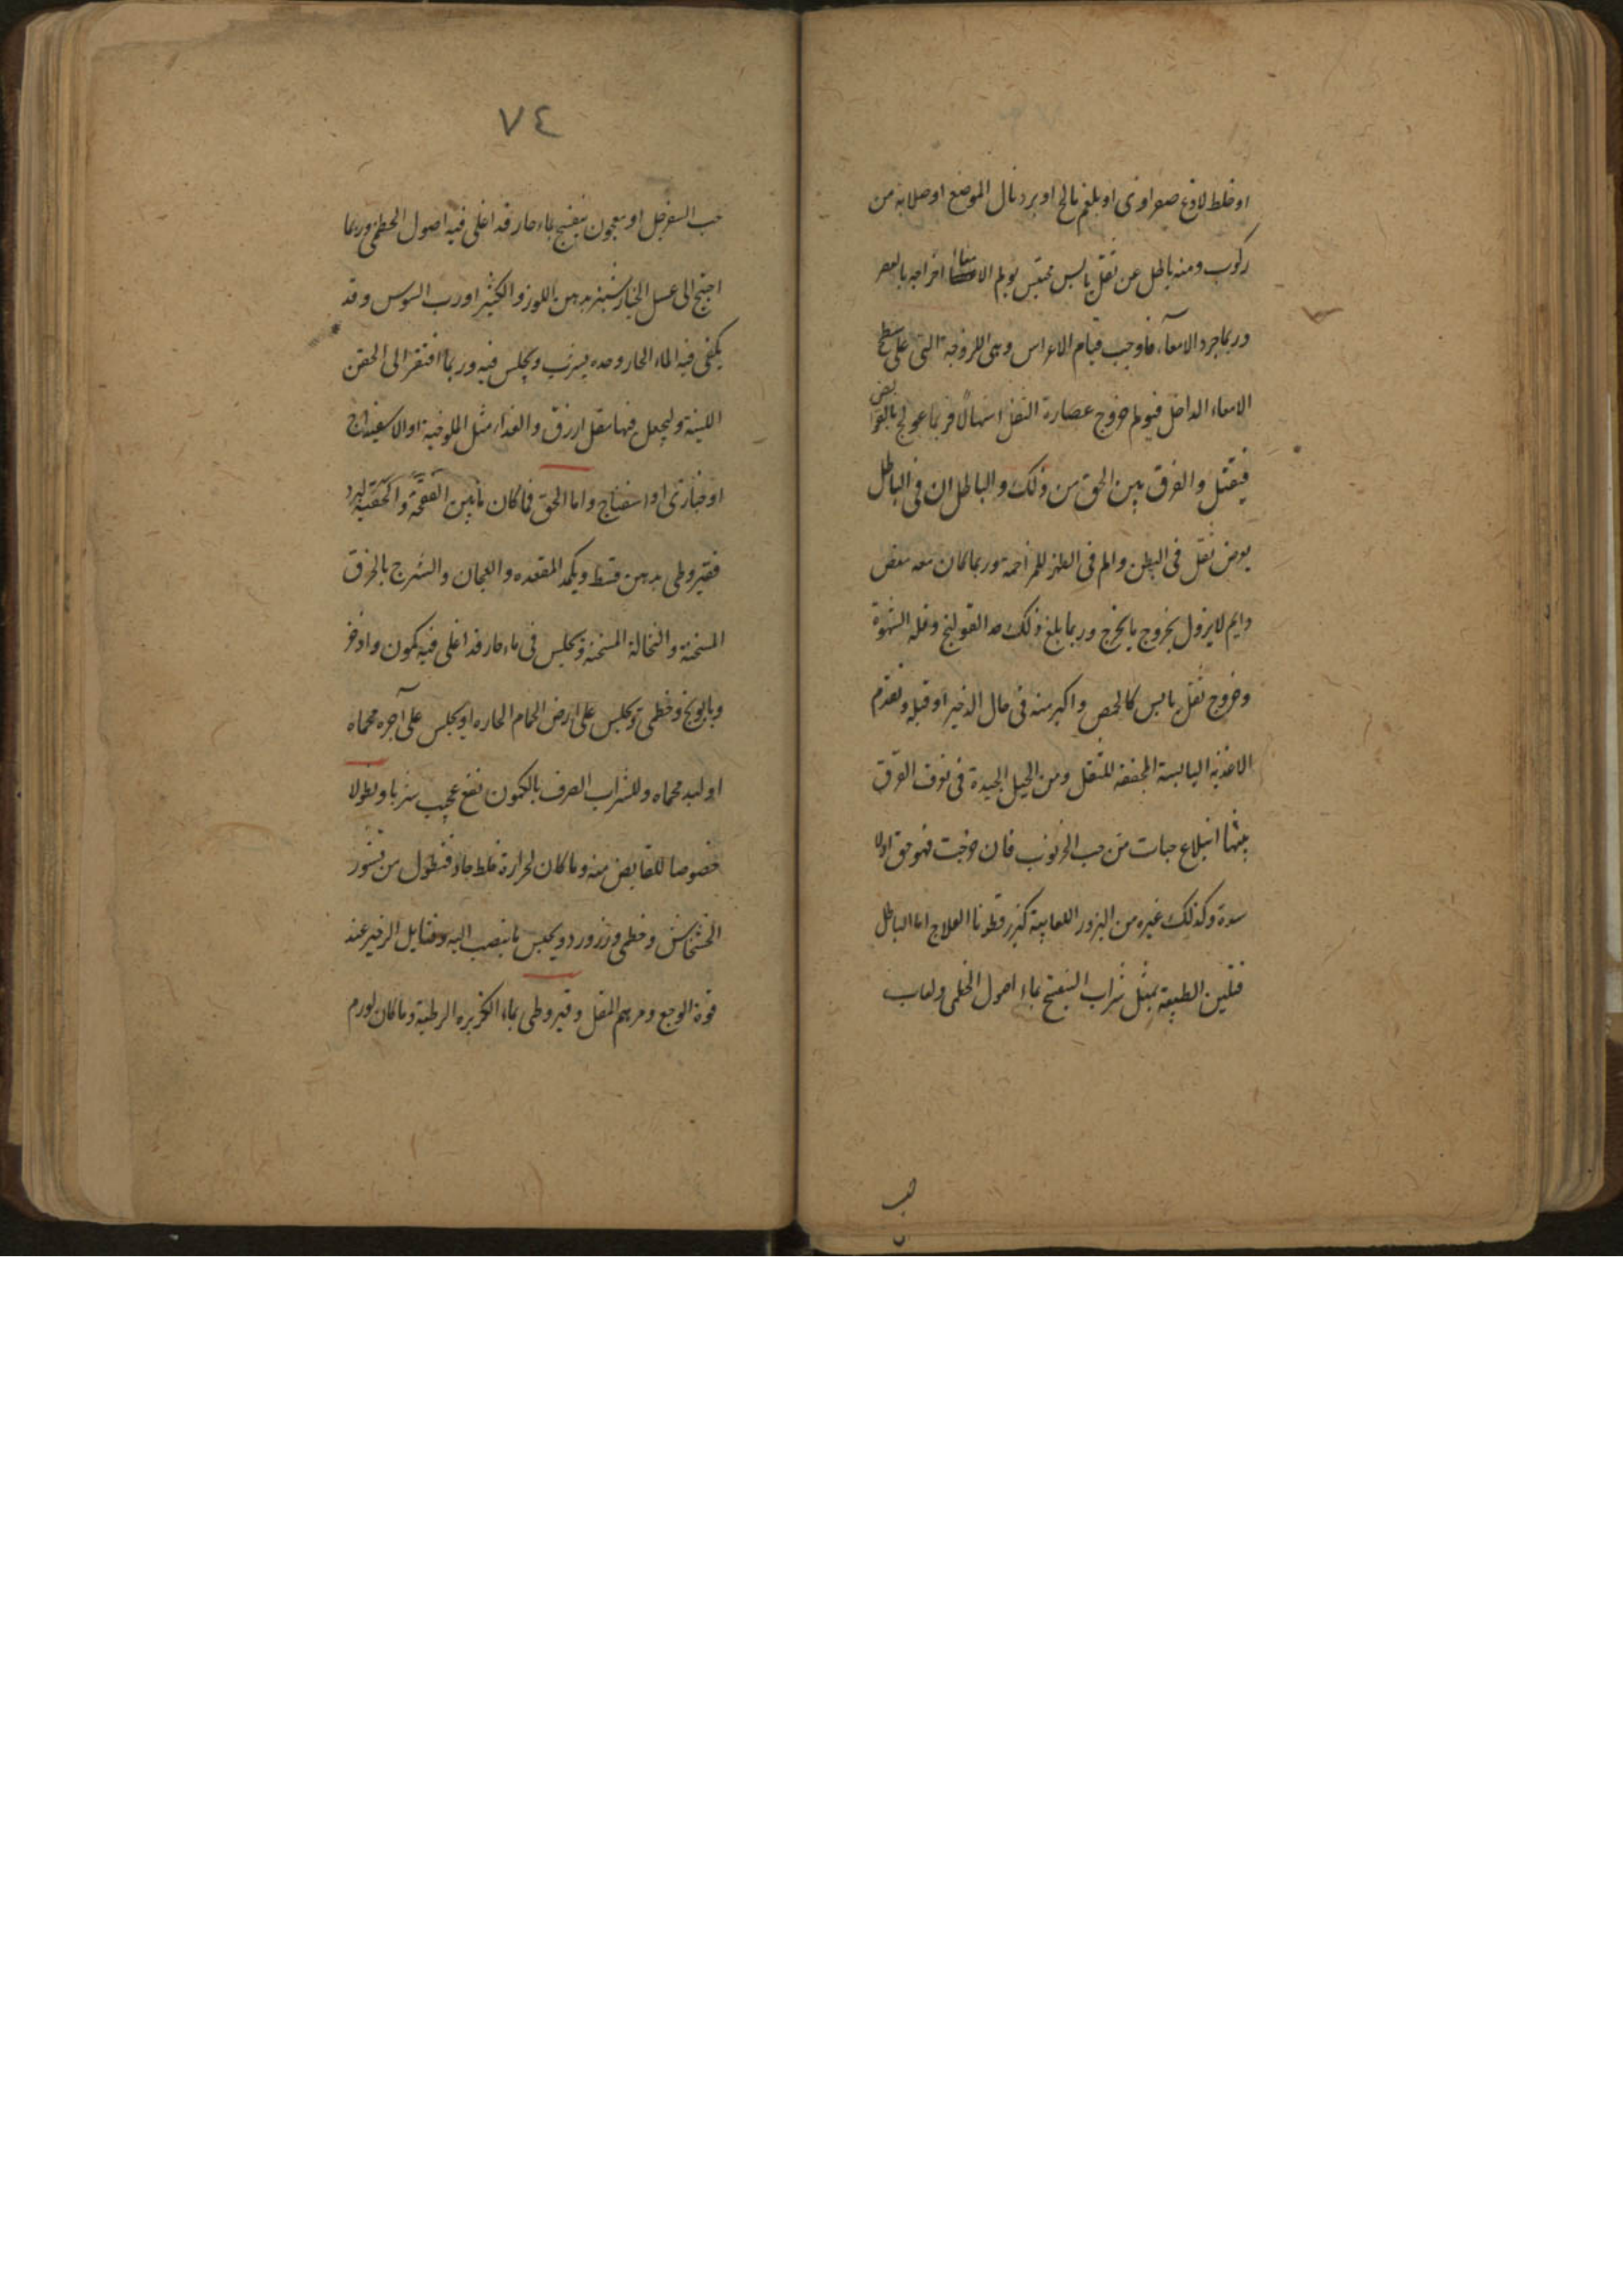 او خلط لاذع صفراوى او بلغم مالح او برد نال الموضع او صلابة من
ركوب ومنه باطل عن ثفل يابس محتبس يولم الامعاء اخراجه بالعصر
وربما جرد الامعآء فاوجب قيام الاغراس وهى اللزوجة التى على سطح
الامعاء الداخل فيوهم خروج عصارة الثفل اسهالا فربما عولج بالقوابض
فيقتل والفرق بين الحق من ذلك والباطل ان فى الباطل
يعرض ثقل فى البطن والم فى الظهر للمزاحمة وربما كان معه مغص
دايم لا يزول بخروج ما يخرج وربما بلغ ذلك حد القولنج وقلة الشهوة
وخروج ثفل يابس كالحمص واكبر منه فى حال الزحير او قبله وتقدم
الاغذية اليابسة المجففة للثفل ومن الحيل الجيدة فى تعرف الفرق
بينهما ابتلاع حبات من حب الخرنوب فان خرجت فهو حق اولا
سدة وكذلك غيره من البزور اللعابية كبزر قطونا العلاج اما الباطل
فتليين الطبيعة بمثل شراب البنفسج بماء اصول الخطمى ولعاب
حب
٧٤
حب السفرجل او معجون بنفسج بماء حار قد اغلى فيه اصول الخطمى وربما
احتيج الى عسل الخيارشنبر بدهن اللوز والكثيرا ورب السوس وقد
يكفى فيه الماء الحار وحده يشرب ويجلس فيه وربما افتقر الى الحقن
اللينة وليجعل فيها مقل ازرق والغذاء مثل الملوخية او الاسفيداج
او خبازى او اسفناج واما الحق فما كان ما بين القعقة والحقية لبرد
فقيروطى بدهن قسط ويكمد المقعده والعجان والشرج بالخرق
المسخنة والنخالة المسخنة ويجلس فى ماء حار قد اغلى فيه كمون واذخر
وبابونج وخطمى ويجلس على ارض الحمام الحاره او يجلس على آجره محماه
او لبد محماه وللشراب الصرف بالكمون نفع عجيب شربا ونطولا
خصوصا للقابض منه وما كان لحرارة خلط حاد فنطول من قشور
الخشخاش وخطمى وزرورد ويحبس ما ينصب اليه وفتايل الزحير عند
قوة الوجع ومرهم المقل وقيروطى بماء الكزبره الرطبة وما كان لورم